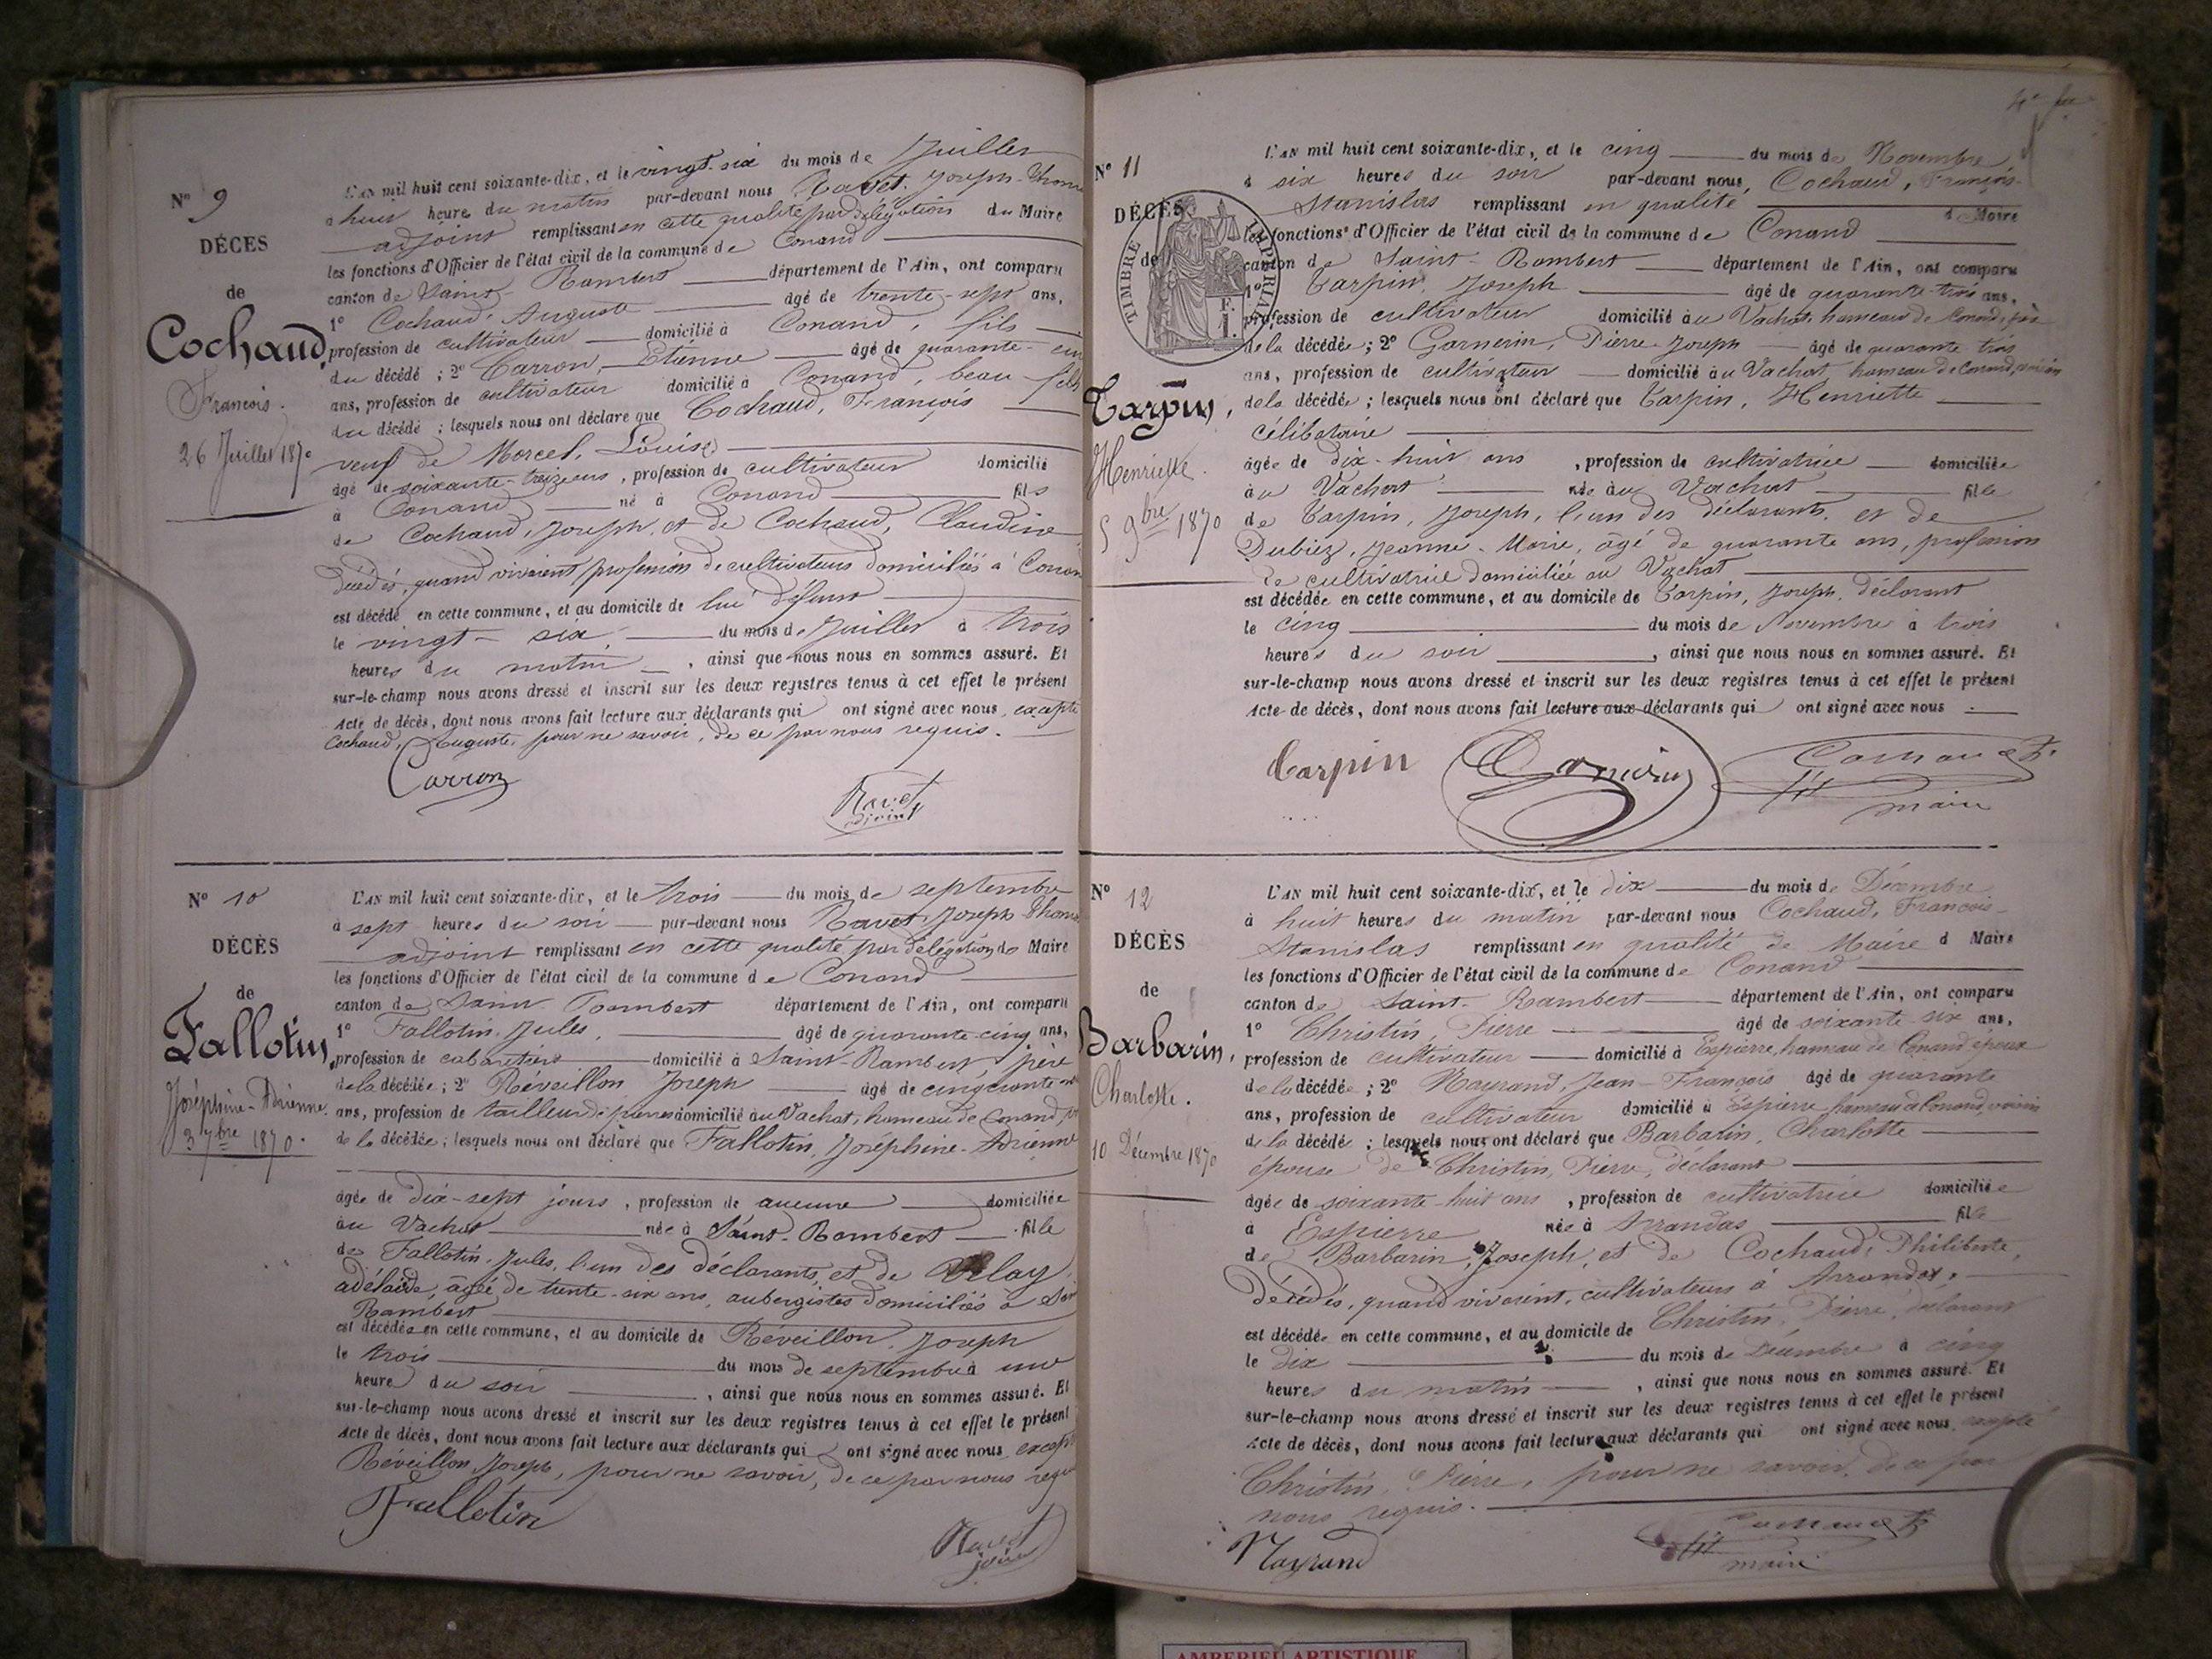 N° 9
DÉCES
de
Cochaud,
François.
26 Juillet 1870
L'AN mil huit cent soixante-dix, et le vingt-six du mois de Juillet
à huit heure du matin par-devant nous Ravet, Joseph-Thom
adjoint remplissant en cette qualité par délégation du Maire
les fonctions d'Officier de l'état civil de la commune de Conand
canton de Saint-Rambert département de l'Ain, ont comparu
1° Cochaud, Auguste âgé de trente-sept ans,
profession de cultivateur domicilié à Conand, fils
du décédé ; 2° Carron, Etienne âgé de quarante-cin
ans, profession de cultivateur domicilié à Conand, beau-fils
du décédé ; lesquels nous ont déclaré que Cochaud, François
veuf de Morcel, Louise
âgé de soixante-treize ans, profession de cultivateur domicilié
à Conand né à Conand fils
de Cochaud, Joseph, et de Cochaud, Claudine
décédés, quand vivaient profession de cultivateurs domiciliés à Conan
est décédé en cette commune, et au domicile de lui défunt
le vingt-six du mois de Juillet à trois
heures du matin, ainsi que nous nous en sommes assuré. Et
sur-le-champ nous avons dressé et inscrit sur les deux registres tenus à cet effet le présent
Acte de décès, dont nous avons fait lecture aux déclarants qui ont signé avec nous, excepté
Cochaud, Auguste, pour ne savoir, de ce par nous requis.
Carron
Ravet
adjoint
N° 10
DÉCÈS
de
Fallotin,
Joséphine-Adrienne.
3 7bre 1870.
L'AN mil huit cent soixante-dix, et le trois du mois de septembre
à sept heures du soir par-devant nous Ravet, Joseph-Thom
adjoint remplissant en cette qualité par délégation du Maire
les fonctions d'Officier de l'état civil de la commune de Conand
canton de Saint-Rambert département de l'Ain, ont comparu
1° Fallotin, Jules, âgé de quarante-cinq ans,
profession de cabaretier domicilié à Saint-Rambert, père
de la décédée ; 2° Réveillon Joseph âgé de cinquante
ans, profession de tailleur de pierres domicilié au Vachat, hameau de Conand,
de la décédée ; lesquels nous ont déclaré que Fallotin, Joséphine-Adrienne
âgée de dix-sept jours, profession de aucune domiciliée
au Vachat née à Saint-Rambert fille
de Fallotin, Jules, l'un des déclarants, et de Velay
adélaïde, âgée de trente-six ans, aubergistes domiciliés à St
Rambert
est décédée en cette commune, et au domicile de Réveillon, Joseph
le trois du mois de septembre à une
heure du soir, ainsi que nous nous en sommes assuré. Et
sur-le-champ nous avons dressé et inscrit sur les deux registres tenus à cet effet le présent
Acte de décès, dont nous avons fait lecture aux déclarants qui ont signé avec nous, except
Réveillon, Joseph, pour ne savoir, de ce par nous requ
Fallotin
Ravet
N° 11
DÉCÈS
de
TIMBRE IMPÉRIAL
1 F.
Carpin,
Henriette.
5 9bre 1870
L'AN mil huit cent soixante-dix, et le cinq du mois de Novembre
à six heures du soir par-devant nous, Cochaud, François-
Stanislas remplissant en qualité d Maire
les fonctions d'Officier de l'état civil de la commune de Conand
canton de Saint-Rambert département de l'Ain, ont comparu
1° Carpin, Joseph âgé de quarante-trois ans,
profession de cultivateur domicilié au Vachat, hameau de Conand, père
de la décédée ; 2° Garnerin, Pierre-Joseph âgé de quarante trois
ans, profession de cultivateur domicilié au Vachat hameau de Conand, voisin
de la décédée ; lesquels nous ont déclaré que Carpin, Henriette
célibataire
âgée de dix-huit ans, profession de cultivatrice domiciliée
au Vachat née au Vachat fille
de Carpin, Joseph, l'un des déclarants, et de
Dubiez, Jeanne-Marie, âgé de quarante ans, profession
de cultivatrice domiciliée au Vachat
est décédée en cette commune, et au domicile de Carpin, Joseph, déclarant
le cinq du mois de Novembre à trois
heures du soir, ainsi que nous nous en sommes assuré. Et
sur-le-champ nous avons dressé et inscrit sur les deux registres tenus à cet effet le présent
Acte de décès, dont nous avons fait lecture aux déclarants qui ont signé avec nous
Carpin
Garnerin
Cochaud f.
maire
N° 12
DÉCÈS
de
Barbarin,
Charlotte.
10 Décembre 1870
L'AN mil huit cent soixante-dix, et le dix du mois de Décembre
à huit heures du matin par-devant nous Cochaud, François-
Stanislas remplissant en qualité de Maire d Maire
les fonctions d'Officier de l'état civil de la commune de Conand
canton de Saint-Rambert département de l'Ain, ont comparu
1° Christin, Pierre âgé de soixante-six ans,
profession de cultivateur domicilié à Espierre, hameau de Conand, époux
de la décédée ; 2° Mayrand, Jean-François âgé de quarante
ans, profession de cultivateur domicilié à Espierre hameau de Conand, voisin
de la décédée ; lesquels nous ont déclaré que Barbarin, Charlotte
épouse de Christin, Pierre, déclarant
âgée de soixante-huit ans, profession de cultivatrice domiciliée
à Espierre née à Arrandas fille
de Barbarin, Joseph, et de Cochaud, Philiberte,
décédés, quand vivaient, cultivateurs à Arrandas,
est décédée en cette commune, et au domicile de Christin, Pierre, déclarant
le dix du mois de Décembre à cinq
heures du matin, ainsi que nous nous en sommes assuré. Et
sur-le-champ nous avons dressé et inscrit sur les deux registres tenus à cet effet le présent
Acte de décès, dont nous avons fait lecture aux déclarants qui ont signé avec nous, excepté
Christin, Pierre, pour ne savoir, de ce par
nous requis.
Mayrand
Cochaud f.
maire
AMBERIEU ARTISTIQUE